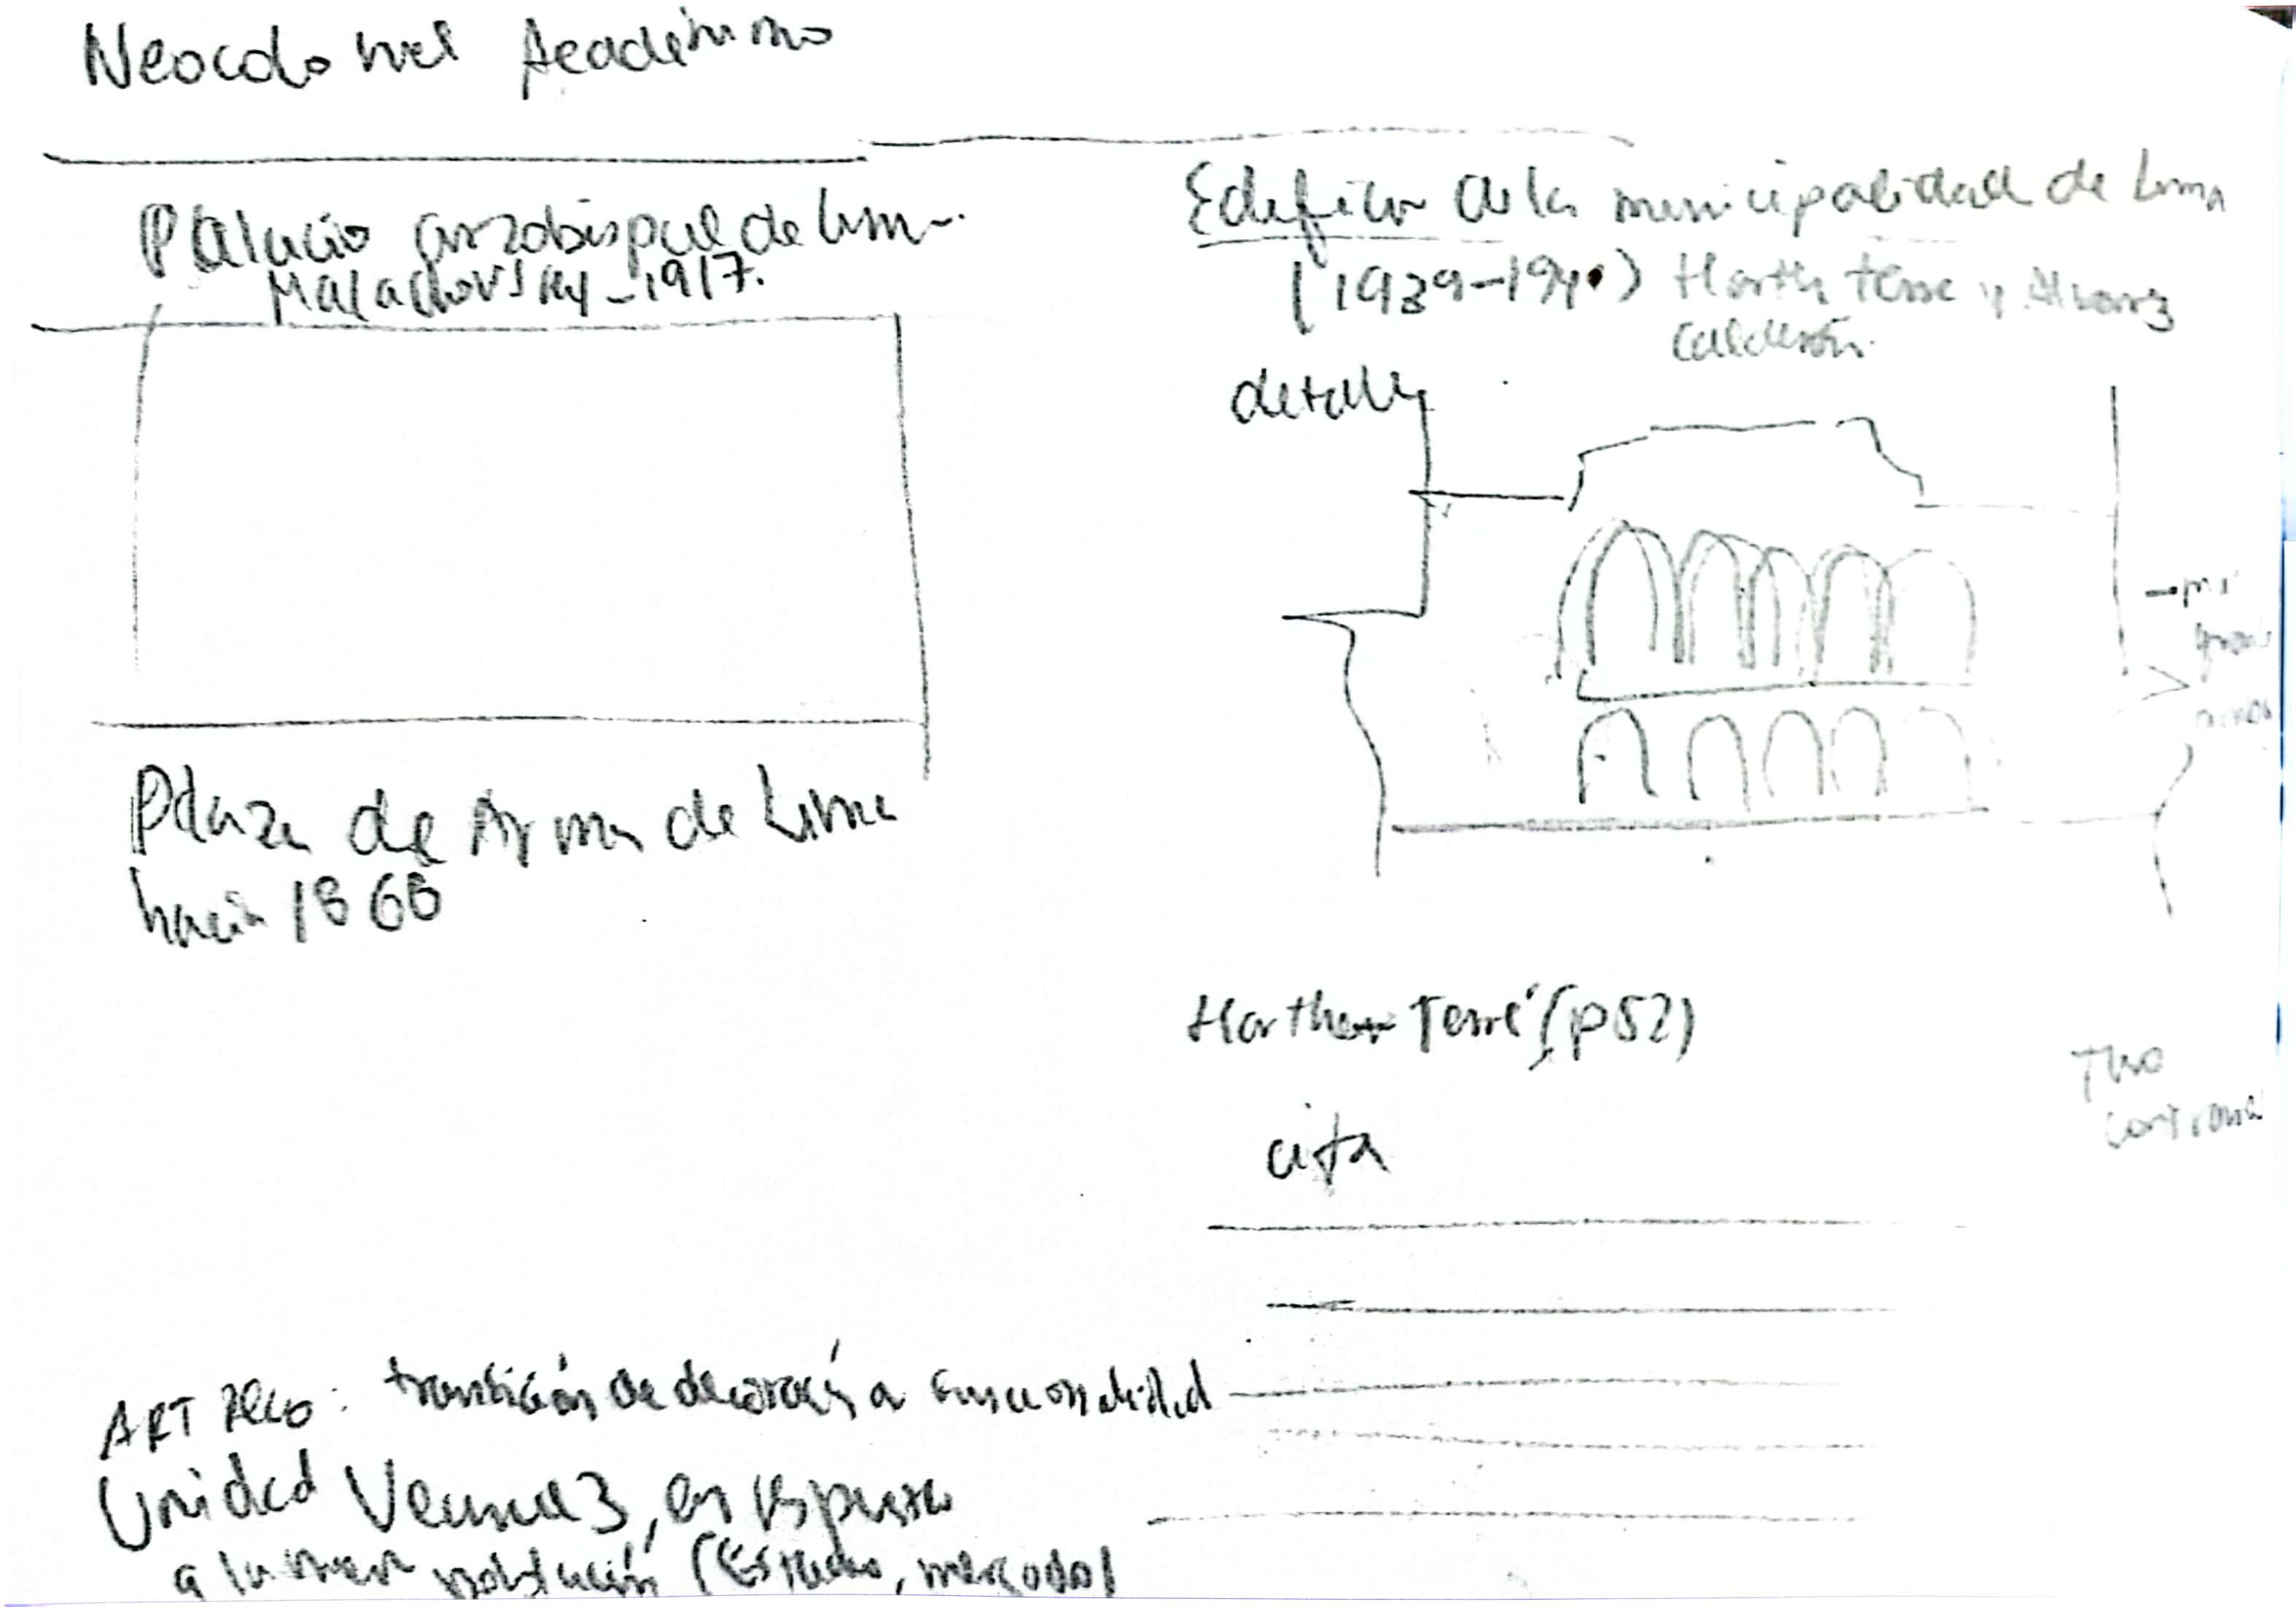 Neocolonial Academismo
Palacio arzobispal de Lima
Malachovsky - 1917.
Plaza de Armas de Lima
hacia 1868
ART Deco: transición de decoración a funcionalidad
Unidad Vecinal 3, en respuesta
a la población (Estado, mercado)
Edificio de la municipalidad de Lima
(1939-1940) Harth Terre y Alvarez
Calderón.
detalle
Harth Terré (p52)
cita